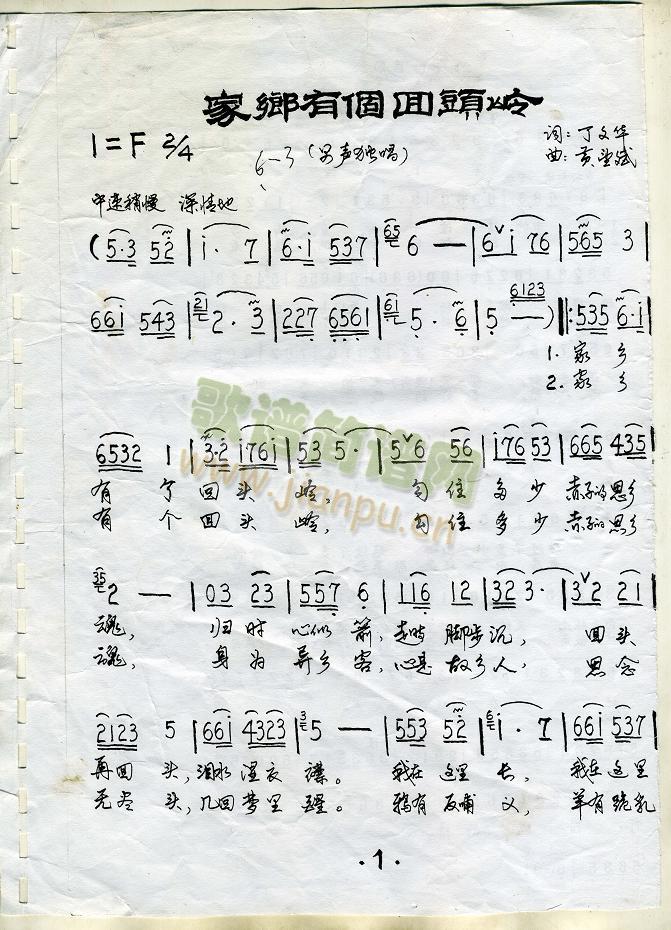 家鄉有個回頭岭
1=F 2/4
6—3 (男声独唱)
词: 丁文华
曲: 黄
中速稍慢 深情地
(5·3 52|i· 7|6·i 537|65 6 —|6 i 76|565 3|
66i 543|21 2· 3|227 6561|61 5· 6|5 6123 —)|:535 6·i|
1. 家 乡
2. 家 乡
6532 1|3·2 i76i|53 5·|5 6 56|i76 53|665 435|
有 个 回 头 岭, 勾 住 多 少 赤子的思乡
有 个 回 头 岭, 勾 住 多 少 赤子的思乡
35 2 —|03 23|557 6|116 12|32 3·|3 2 21|
魂, 归 时 心似 箭, 走时 脚步 沉, 回 头
魂, 身 为 异乡 客, 心是 故乡 人, 思 念
2123 5|66i 4323|3 5 —|553 52|6 i· 7|66i 537|
再回 头, 泪水 湿衣 襟。 我在 这里 长, 我在 这里
无尽 头, 几回 梦里 醒。 鸦有 反哺 义, 羊有 跪乳
歌谱简谱网
www.jianpu.cn
·1·